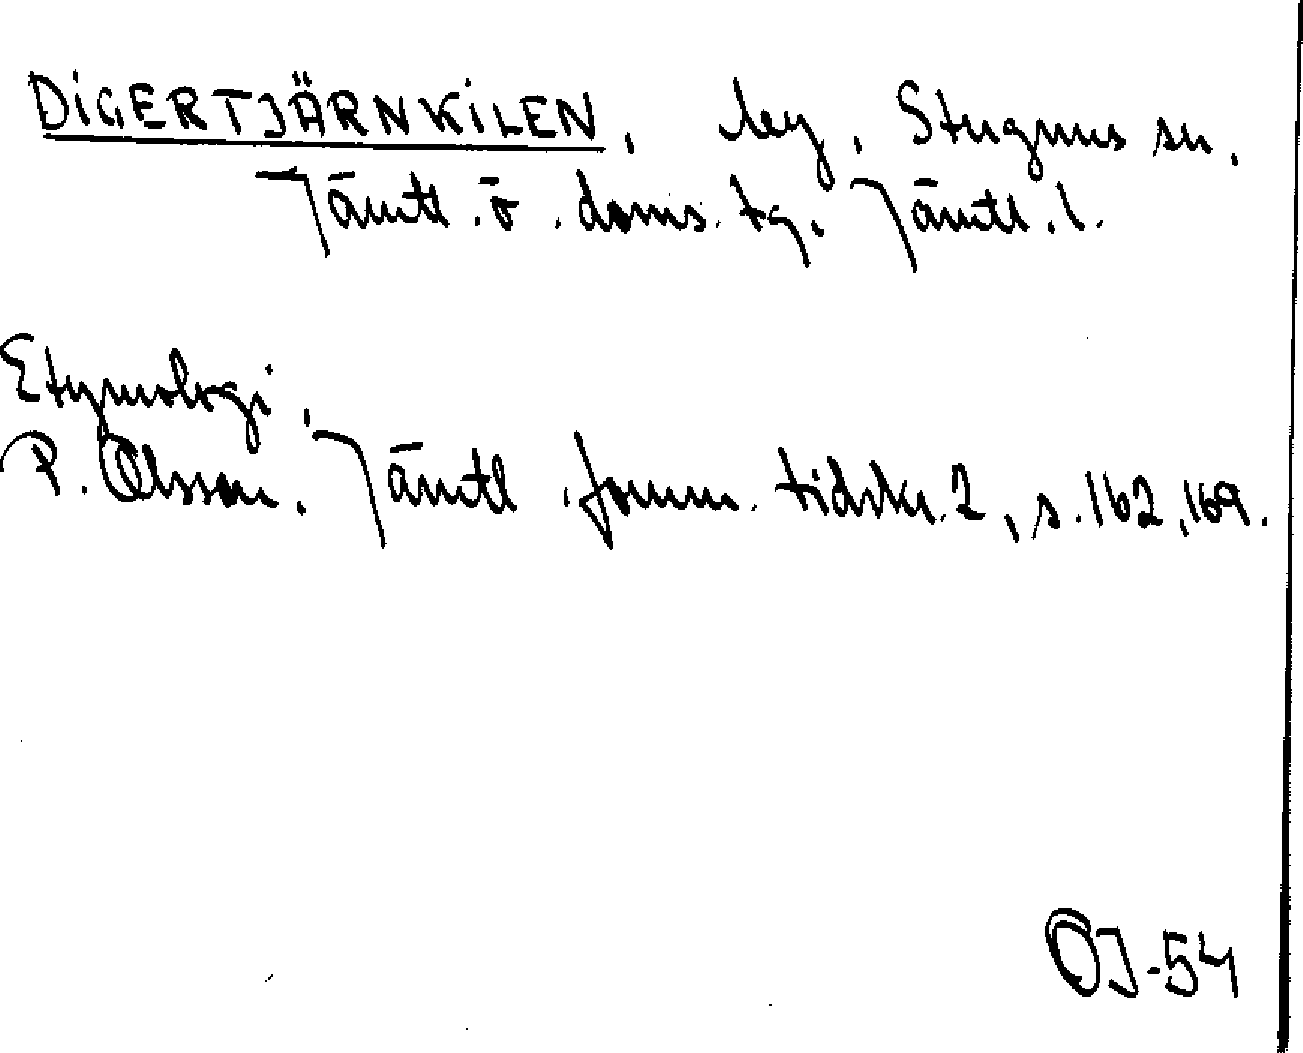 DIGERTJÄRNKILEN, läg, Stuguns sn,
Jämtl. ö. doms. tg. Jämtl. l.
Etymologi,
P. Olsson. Jämtl. fornm. tidskr. 2, s. 162, 169.
OJ-54